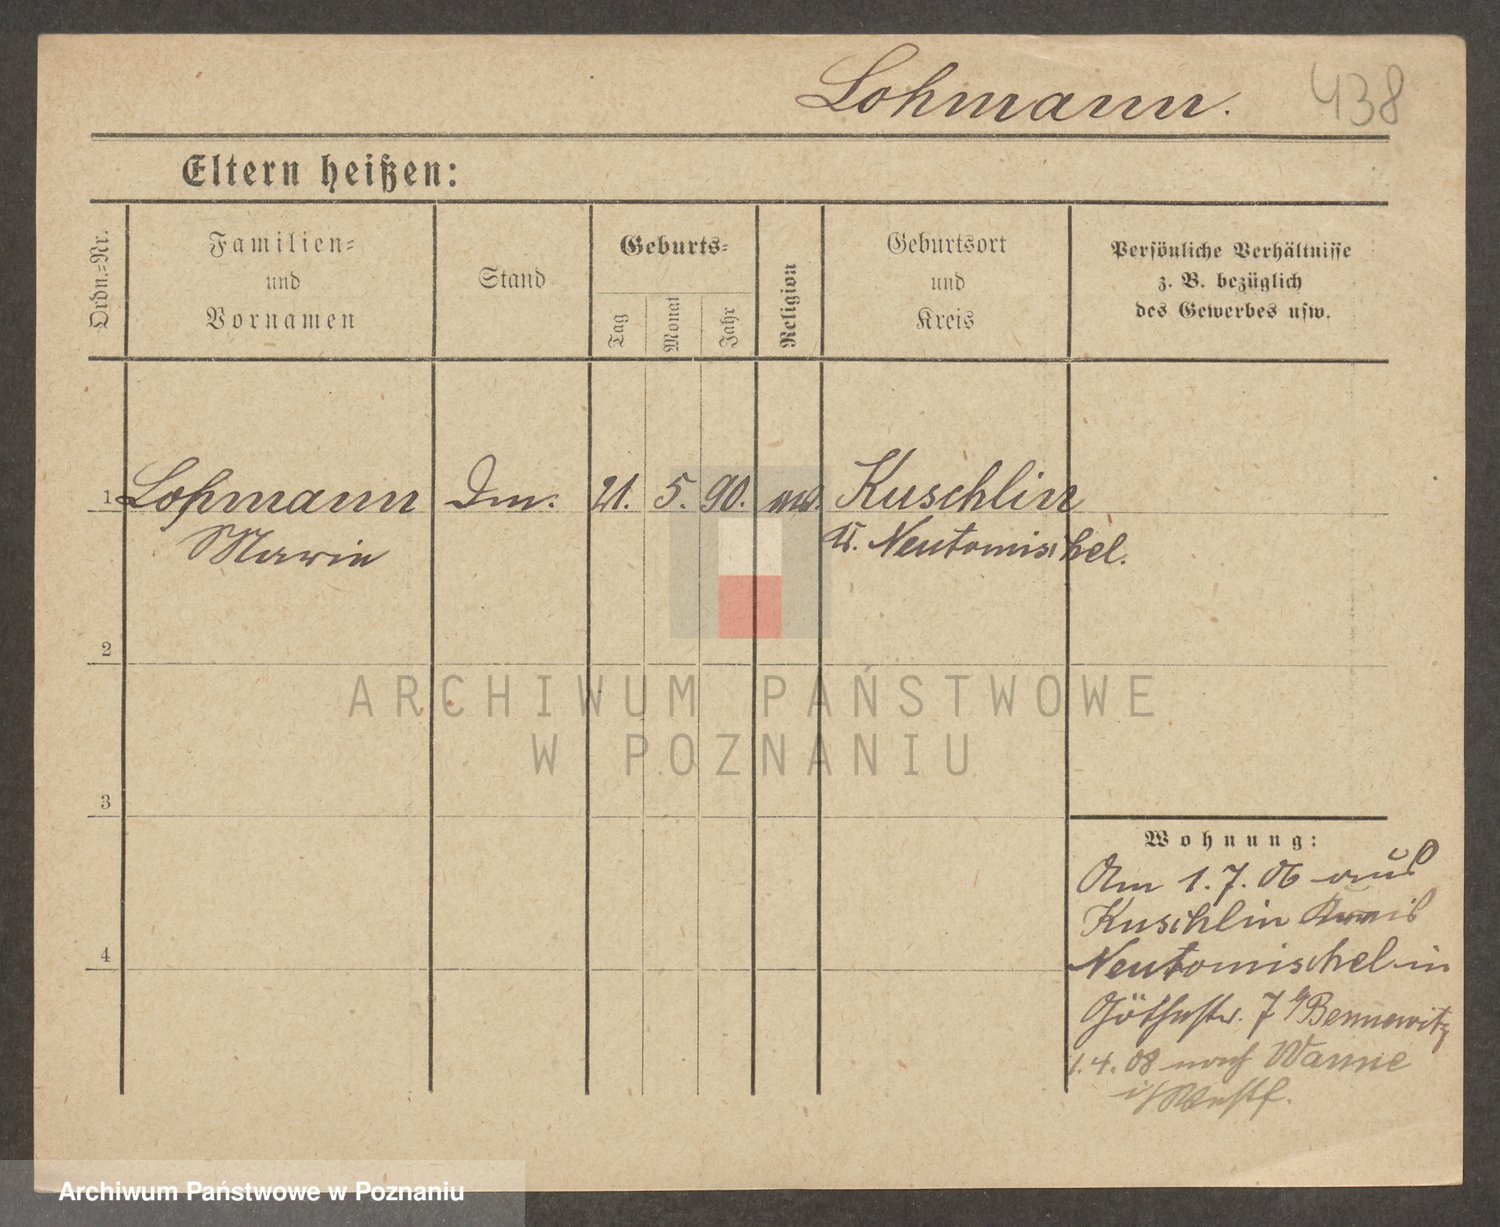 Lohmann. 438
Eltern heißen:
Ordn.=Nr.
Familien=
und
Vornamen
Stand
Geburts=
Tag
Monat
Jahr
Religion
Geburtsort
und
Kreis
Persönliche Verhältnisse
z. B. bezüglich
des Gewerbes usw.
1 Lohmann 21. 5. 90. Kuschlin
Marie Neutomischel.
2
ARCHIWUM PAŃSTWOWE
W POZNANIU
3
Wohnung:
Am 1. 7. 06 aus
Kuschlin Kreis
4 Neutomischel in
Göthestr. 7 b/ Bennewitz
1. 4. 08 nach Wanne
i/ Westf.
Archiwum Państwowe w Poznaniu